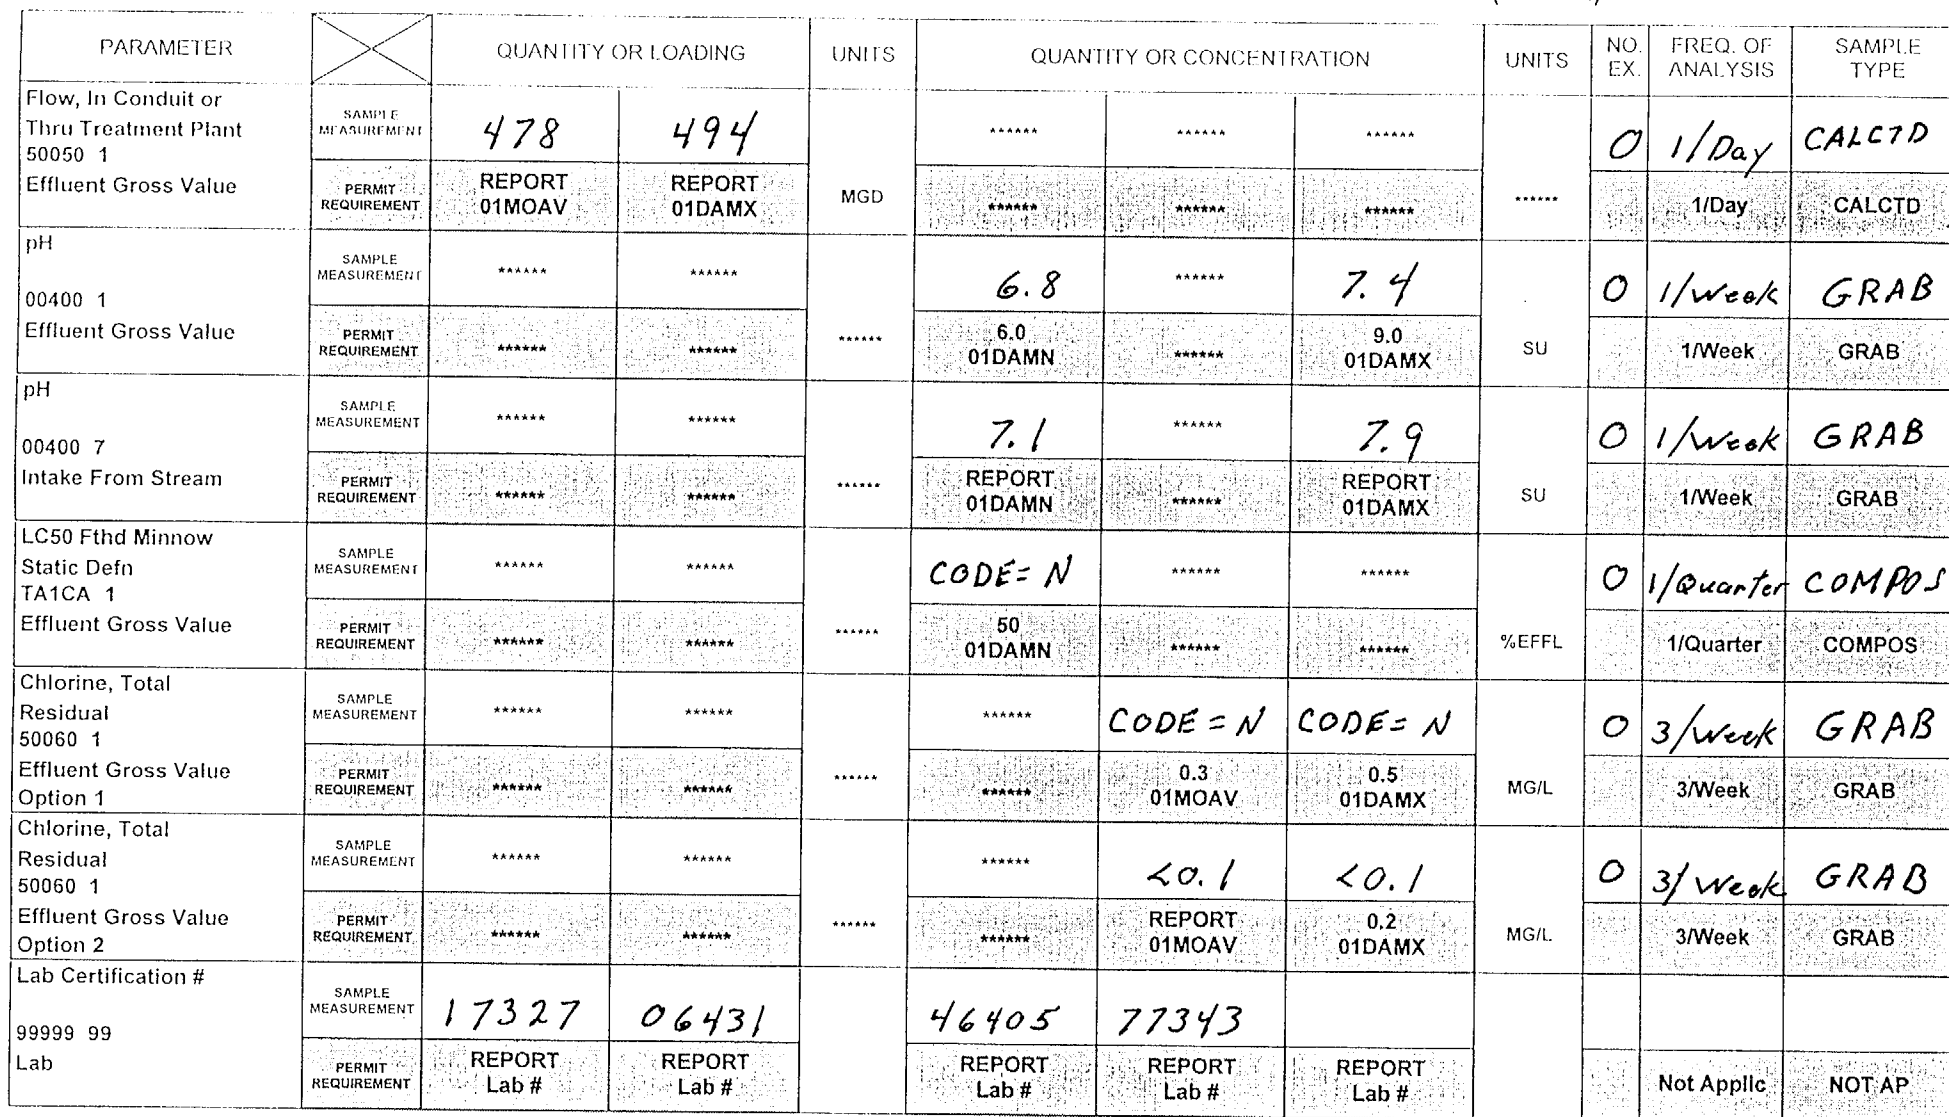 PARAMETER QUANTITY OR LOADING UNITS QUANTITY OR CONCENTRATION UNITS NO. EX. FREQ. OF ANALYSIS SAMPLE TYPE
Flow, In Conduit or
Thru Treatment Plant
50050 1
Effluent Gross Value
SAMPLE MEASUREMENT 478 494 ****** ****** ****** 0 1/Day CALCTD
PERMIT REQUIREMENT REPORT 01MOAV REPORT 01DAMX MGD ****** ****** ****** ****** 1/Day CALCTD
pH
00400 1
Effluent Gross Value
SAMPLE MEASUREMENT ****** ****** 6.8 ****** 7.4 0 1/Week GRAB
PERMIT REQUIREMENT ****** ****** ****** 6.0 01DAMN ****** 9.0 01DAMX SU 1/Week GRAB
pH
00400 7
Intake From Stream
SAMPLE MEASUREMENT ****** ****** 7.1 ****** 7.9 0 1/Week GRAB
PERMIT REQUIREMENT ****** ****** ****** REPORT 01DAMN ****** REPORT 01DAMX SU 1/Week GRAB
LC50 Fthd Minnow
Static Defn
TA1CA 1
Effluent Gross Value
SAMPLE MEASUREMENT ****** ****** CODE= N ****** ****** 0 1/Quarter COMPOS
PERMIT REQUIREMENT ****** ****** ****** 50 01DAMN ****** ****** %EFFL 1/Quarter COMPOS
Chlorine, Total
Residual
50060 1
Effluent Gross Value
Option 1
SAMPLE MEASUREMENT ****** ****** ****** CODE = N CODE= N 0 3/Week GRAB
PERMIT REQUIREMENT ****** ****** ****** ****** 0.3 01MOAV 0.5 01DAMX MG/L 3/Week GRAB
Chlorine, Total
Residual
50060 1
Effluent Gross Value
Option 2
SAMPLE MEASUREMENT ****** ****** ****** <0.1 <0.1 0 3/Week GRAB
PERMIT REQUIREMENT ****** ****** ****** ****** REPORT 01MOAV 0.2 01DAMX MG/L 3/Week GRAB
Lab Certification #
99999 99
Lab
SAMPLE MEASUREMENT 17327 06431 46405 77343
PERMIT REQUIREMENT REPORT Lab # REPORT Lab # REPORT Lab # REPORT Lab # REPORT Lab # Not Applic NOT AP